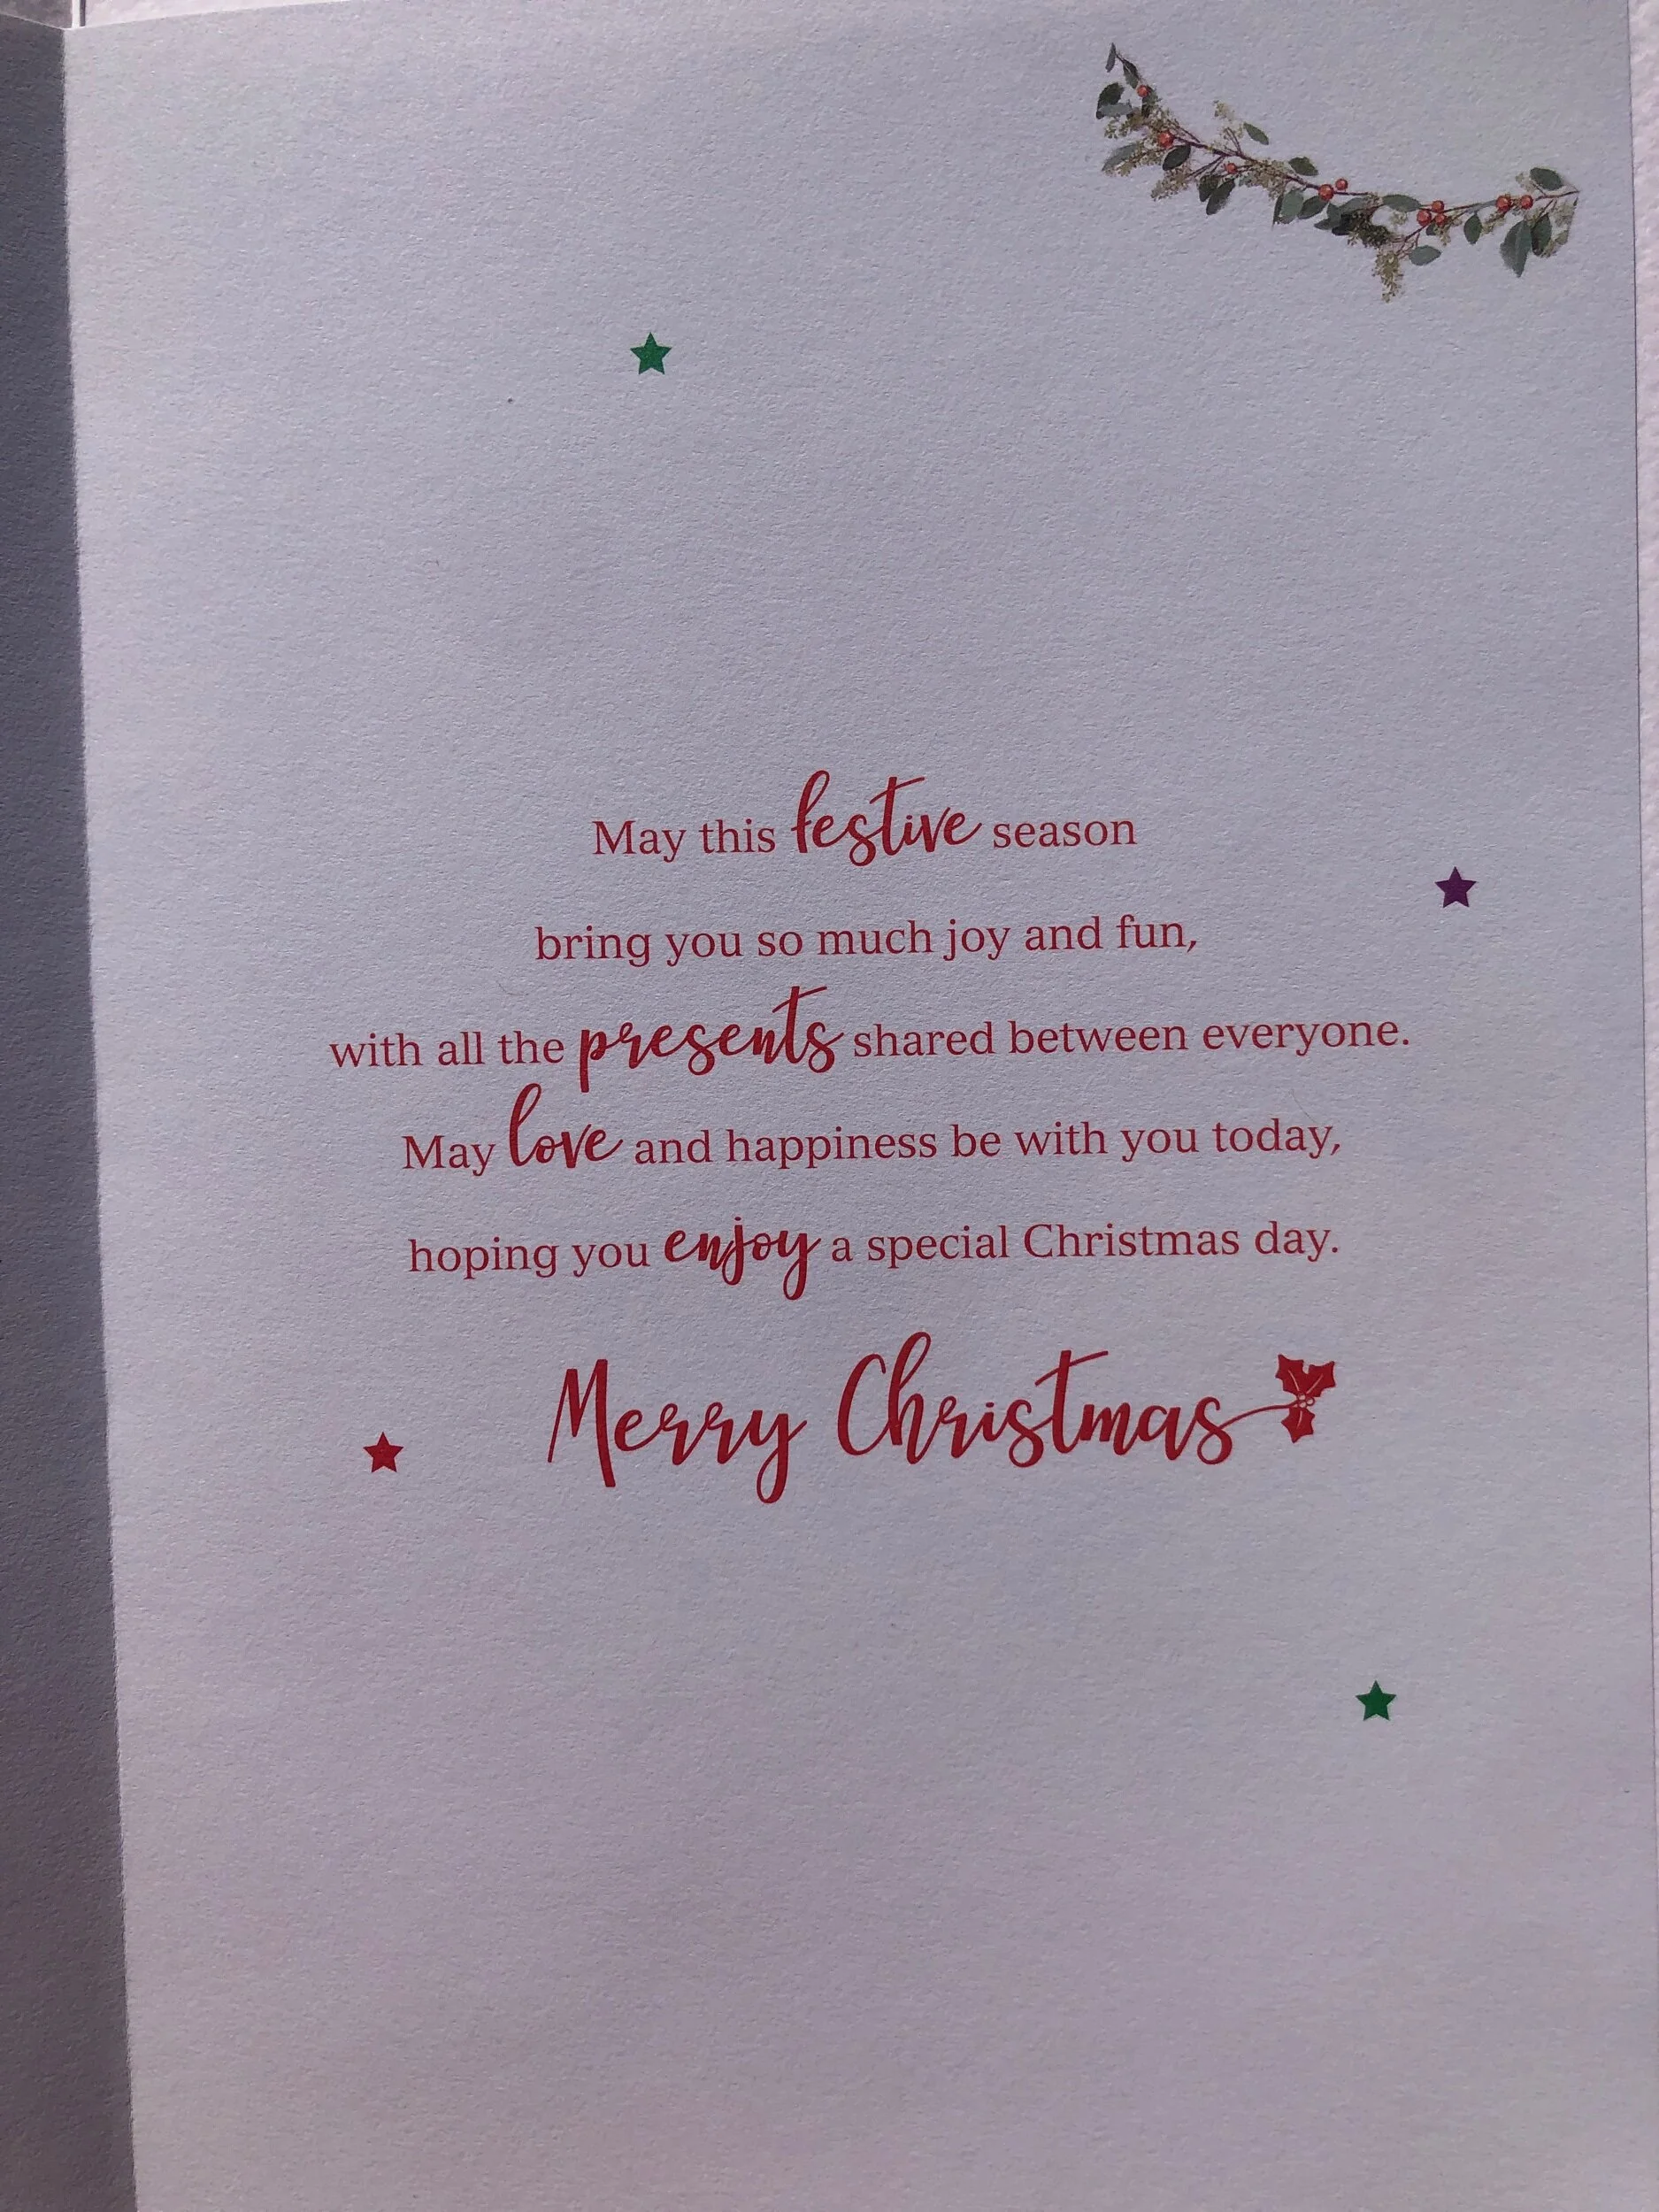 May this festive season
bring you so much joy and fun,
with all the presents shared between everyone.
May love and happiness be with you today,
hoping you enjoy a special Christmas day.
Merry Christmas